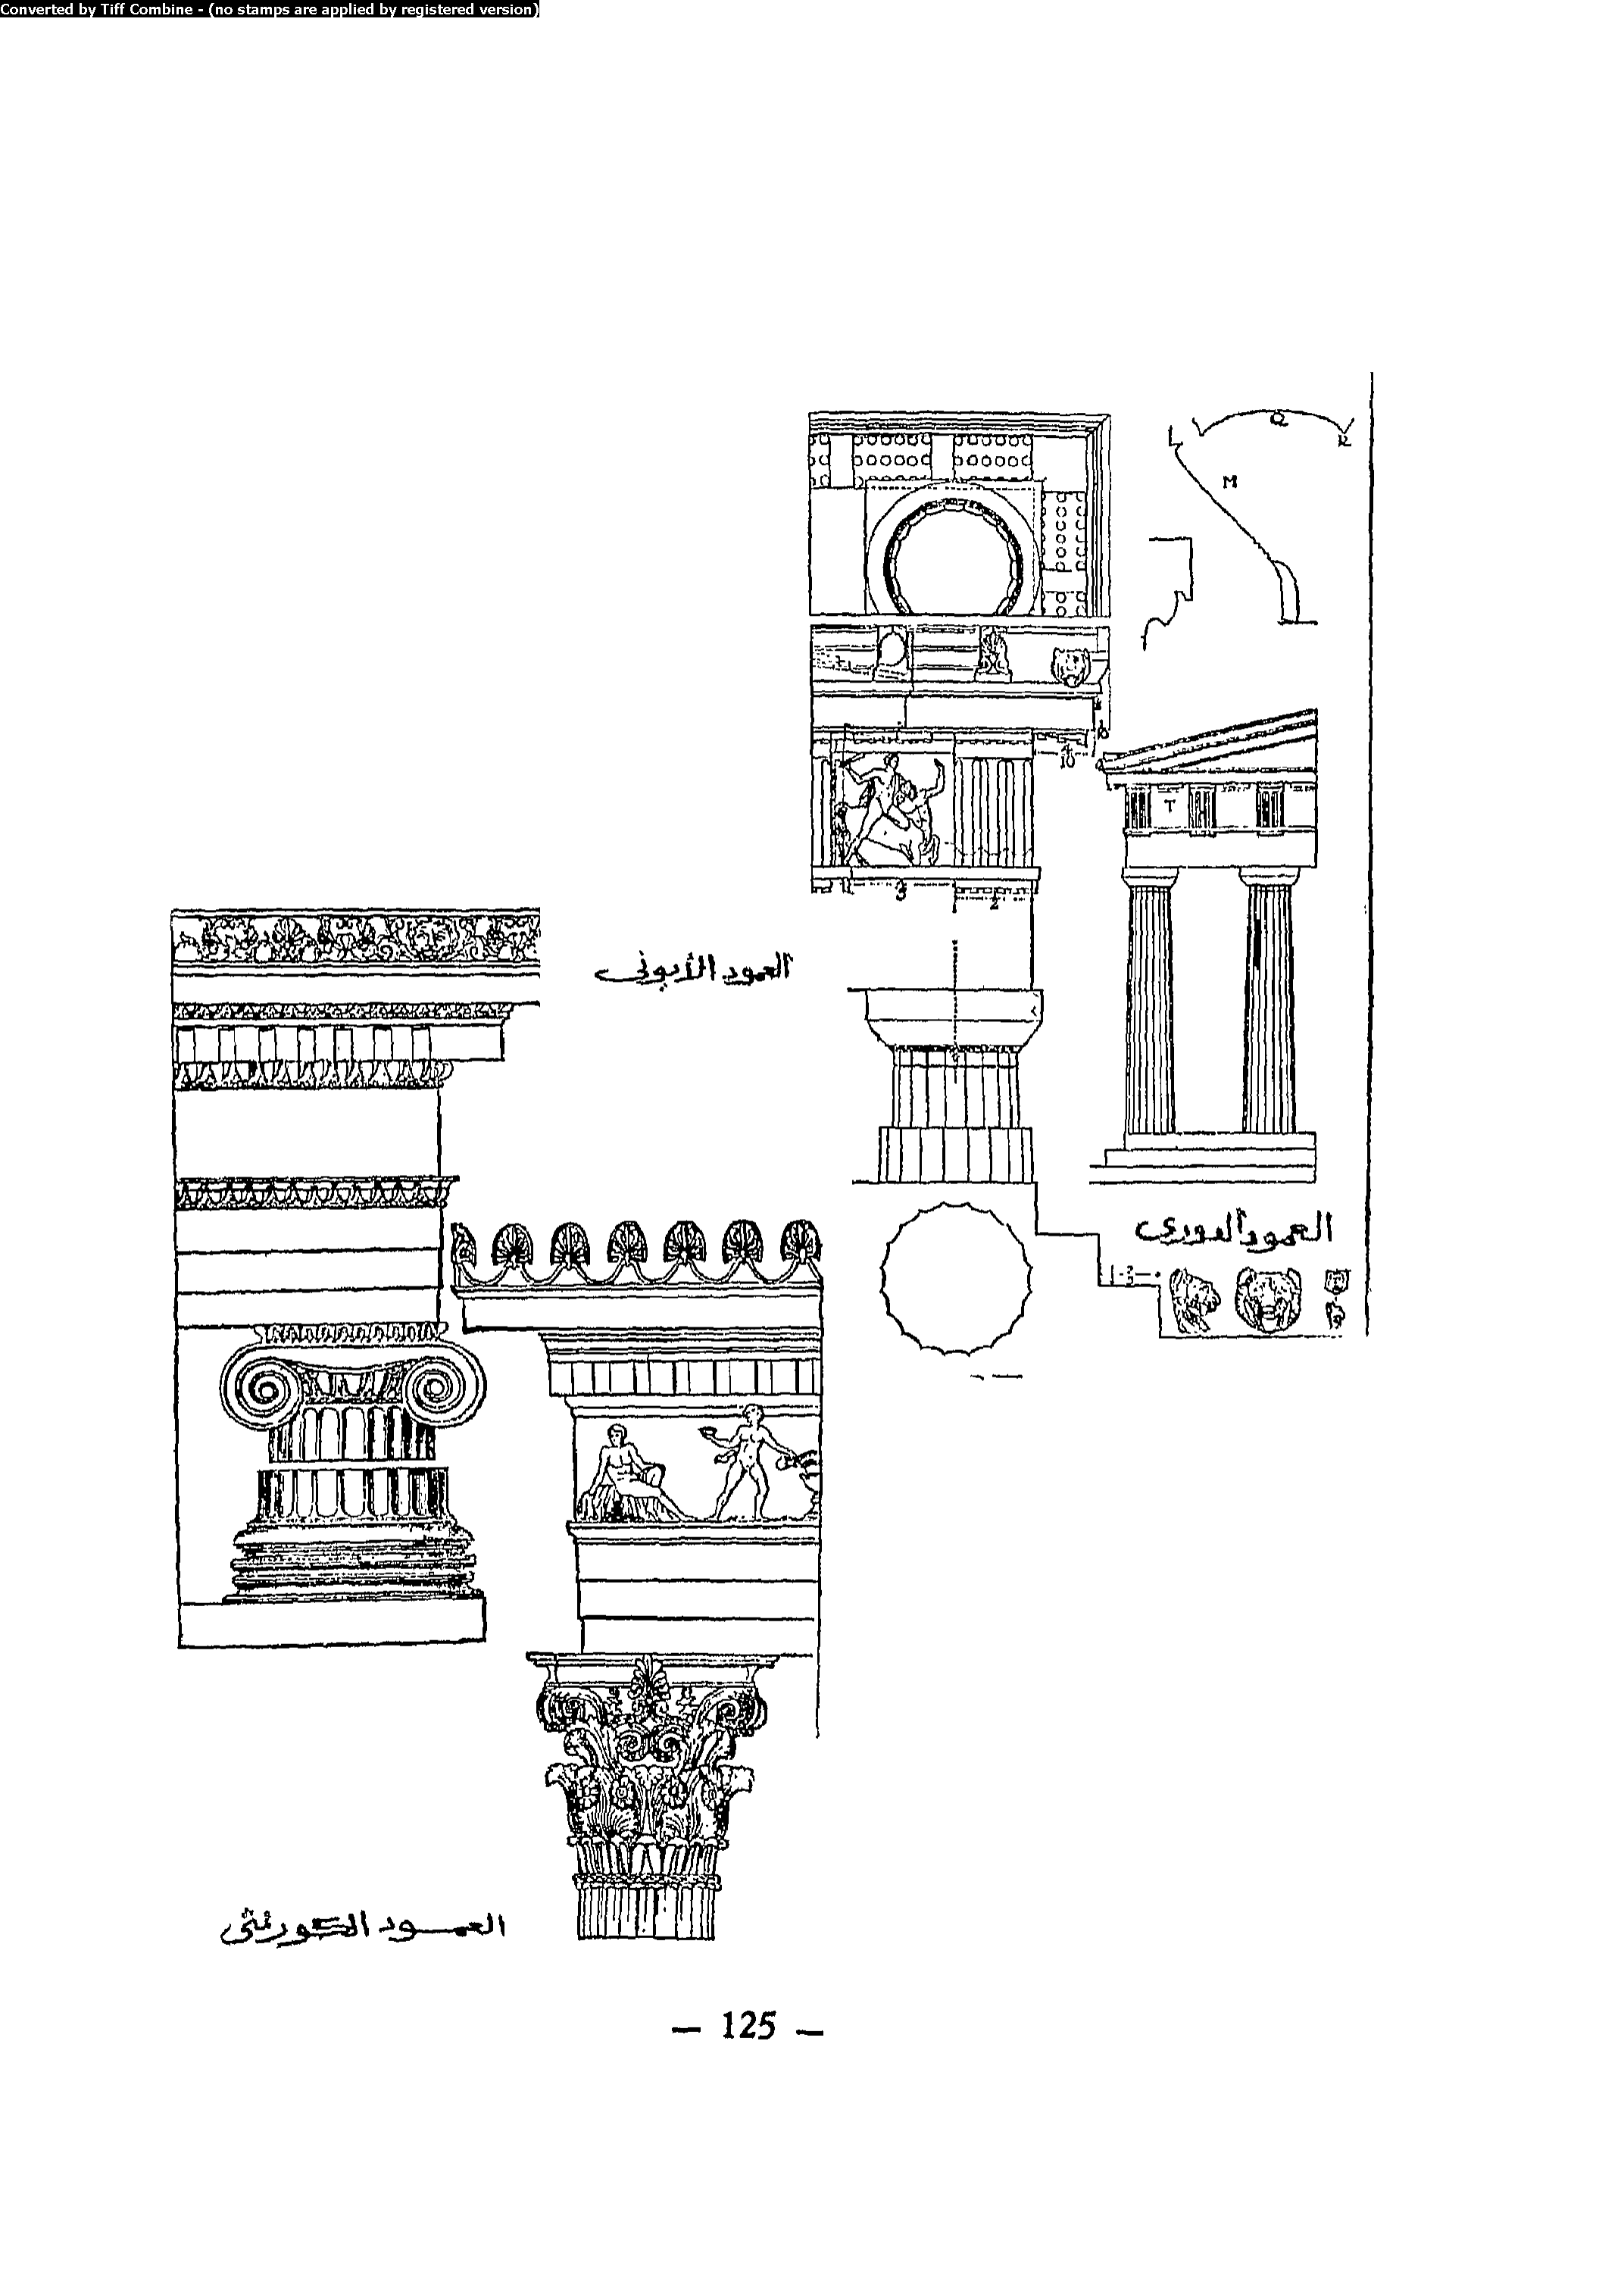 Converted by Tiff Combine - (no stamps are applied by registered version)
Q
L
R
M
4
10
T
3
2
العمود الأيونى
العمود الدورى
1-3
العمود الكورنثى
— 125 —